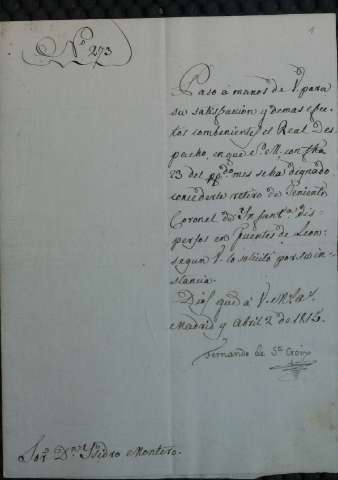 1
Nº 273
Paso á manos de V. para
su satisfaccion y demas efec-
tos combenientes el Real Des-
pacho, en que S. M. con fha
23 del ppdo mes se ha dignado
concederle retiro de Teniente
Coronel de Infantª dis-
persos en Fuentes de Leon
segun V. lo solicitó por su in-
stancia.
Dios gue á V. ms. as.
Madrid y Abril 2 de 1815.
Fernando de Sta Croix
Sor. Dn. Ysidro Montero.